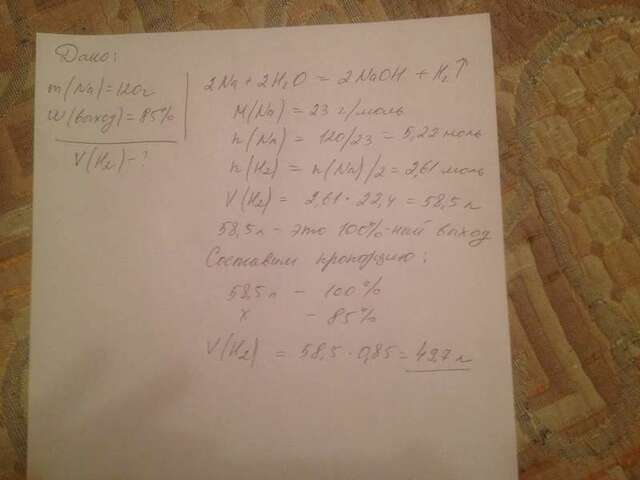 Дано:
m(Na)=120г
W(выход)=85%
V(H₂)-?
2Na + 2H₂O = 2NaOH + H₂↑
M(Na) = 23 г/моль
n(Na) = 120/23 = 5,22 моль
n(H₂) = n(Na)/2 = 2,61 моль
V(H₂) = 2,61·22,4 = 58,5 л
58,5 л - это 100%-ный выход
Составим пропорцию:
58,5 л - 100%
x - 85%
V(H₂) = 58,5·0,85 = 49,7 л